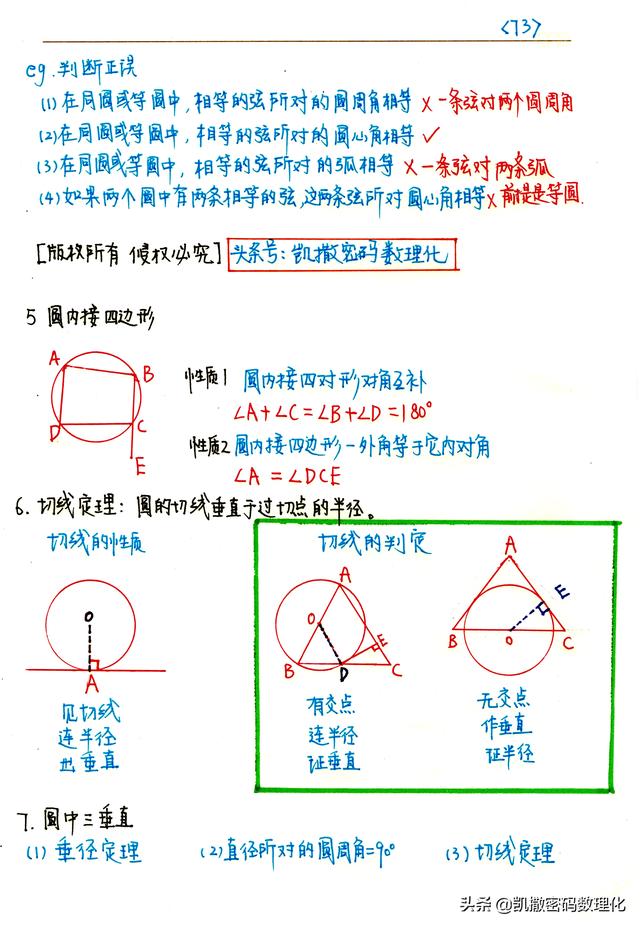 <73>
eg.判断正误
(1)在同圆或等圆中,相等的弦所对的圆周角相等 ×一条弦对两个圆周角
(2)在同圆或等圆中,相等的弦所对的圆心角相等✓
(3)在同圆或等圆中,相等的弦所对的弧相等 ×一条弦对两条弧
(4)如果两个圆中有两条相等的弦,这两条弦所对圆心角相等×前提是等圆.
[版权所有 侵权必究] 头条号:凯撒密码数理化
5 圆内接四边形
A B D C E
性质1 圆内接四对形对角互补
∠A+∠C=∠B+∠D=180°
性质2 圆内接四边形一外角等于它内对角
∠A=∠DCE
6.切线定理:圆的切线垂直于过切点的半径。
切线的性质 切线的判定
O A
A O E B D C
A E B O C
见切线 有交点 无交点
连半径 连半径 作垂直
出垂直 证垂直 证半径
7.圆中三垂直
(1)垂径定理 (2)直径所对的圆周角=90° (3)切线定理
头条 @凯撒密码数理化